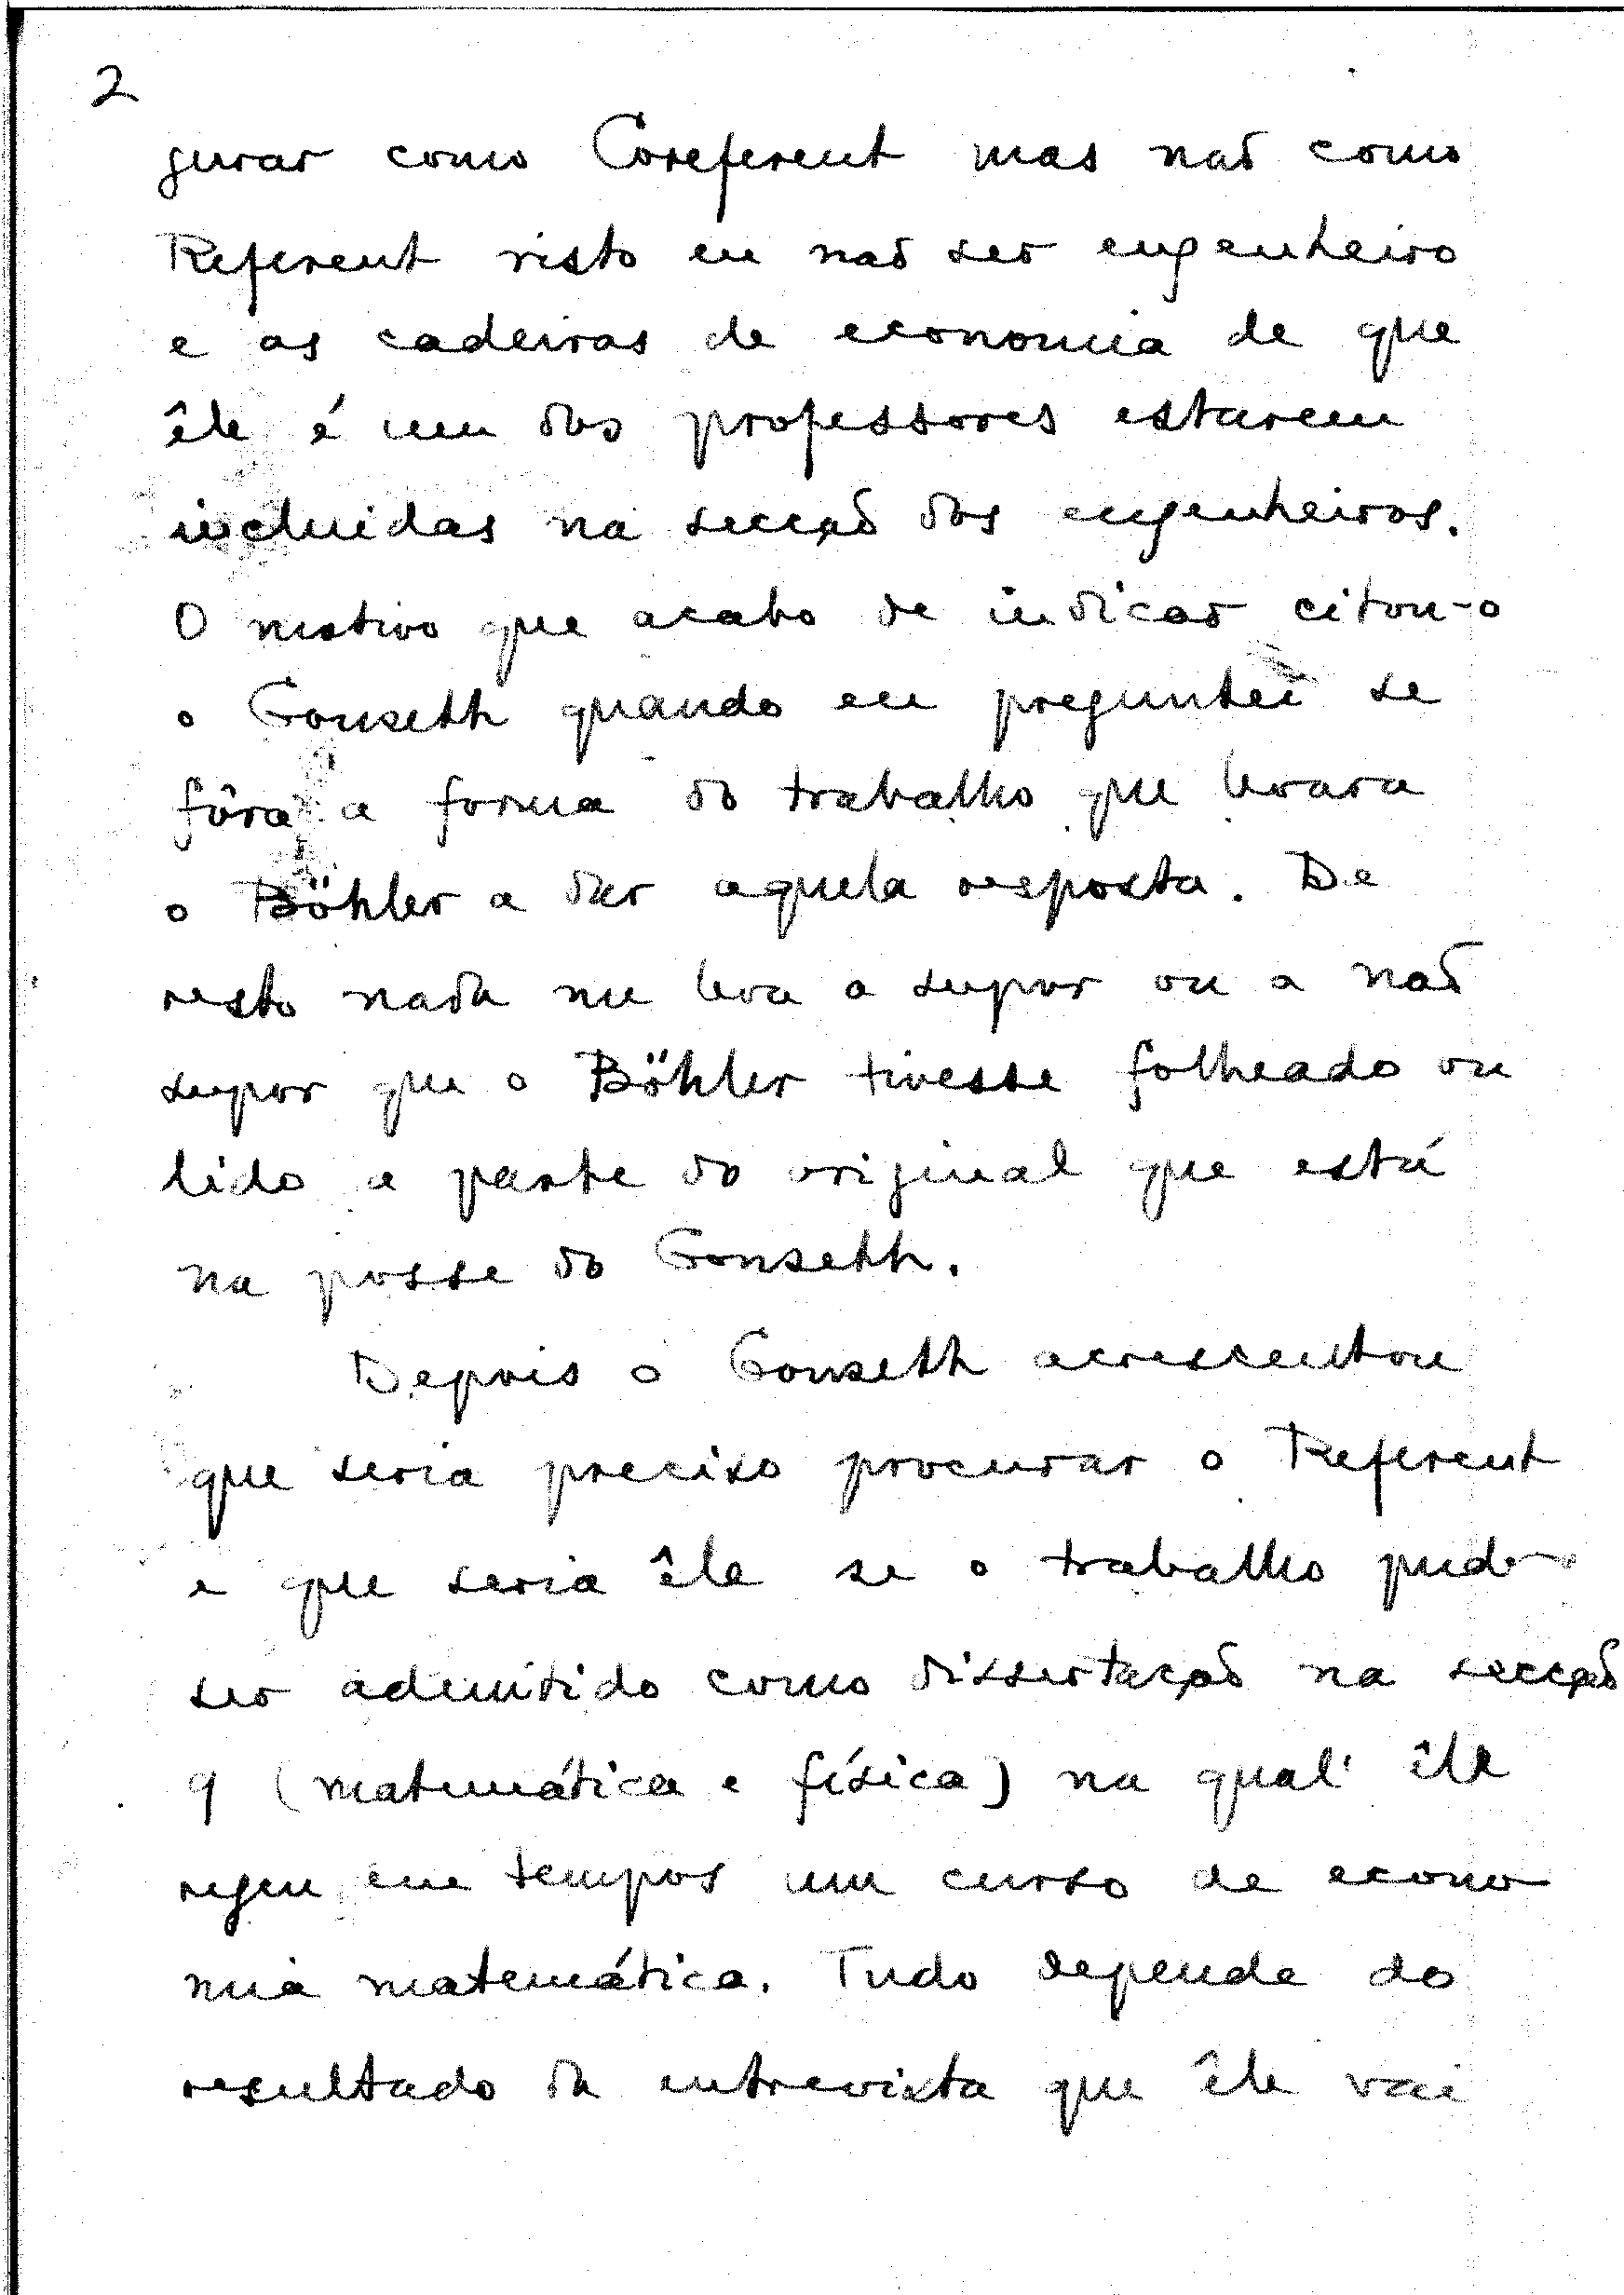 2
gurar como Coreferent mas não como
Referent visto eu não ser engenheiro
e as cadeiras de economia de que
êle é um dos professores estarem
incluidas na secção dos engenheiros.
O motivo que acabo de indicar citou-o
o Gonseth quando eu preguntei se
fôra a forma do trabalho que levara
o Böhler a dar aquela resposta. De
resto nada me leva a supor ou a não
supor que o Böhler tivesse folheado ou
lido a parte do original que está
na posse do Gonseth.
Depois o Gonseth acrescentou
que seria preciso procurar o Referent
e que seria êle se o trabalho pude
ser ademitido como dissertação na secção
9 (matemática e física) na qual êle
regeu em tempos um curso de econo
mia matemática. Tudo depende do
resultado da entrevista que êle vai